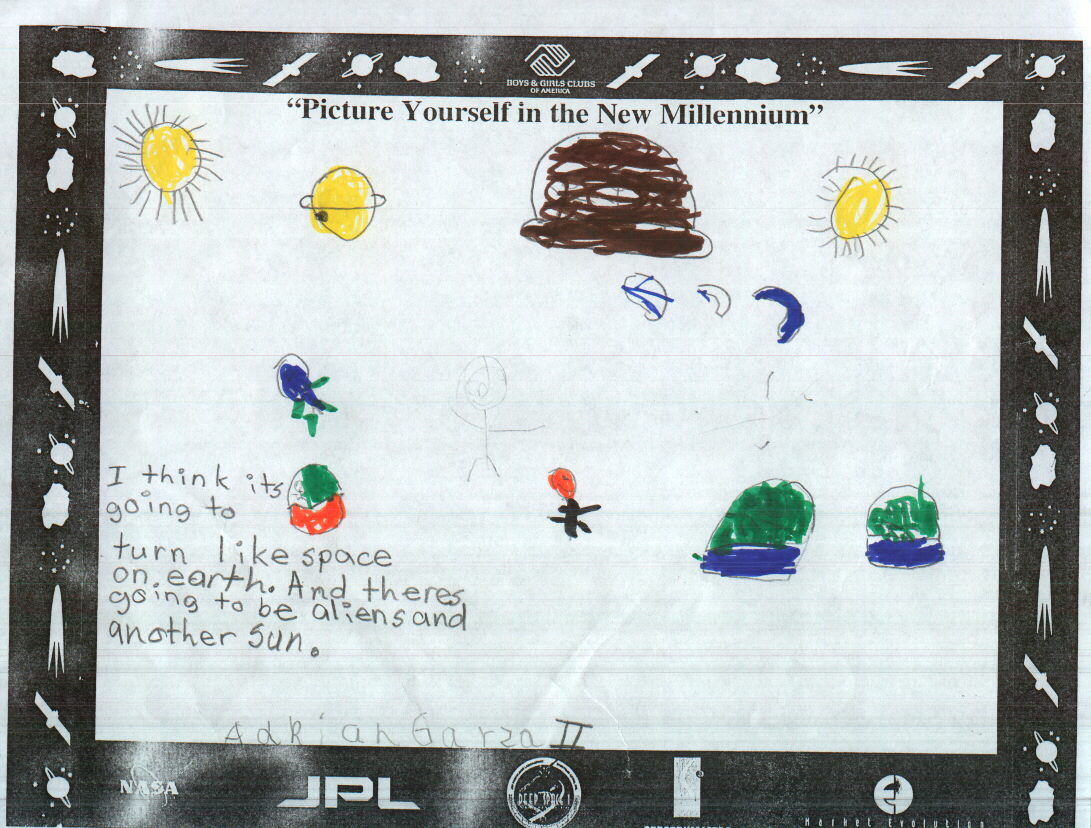 BOYS & GIRLS CLUBS
OF AMERICA
“Picture Yourself in the New Millennium”
I think its
going to
turn like space
on earth. And theres
going to be aliens and
another sun.
Adrian Garza II
NASA
JPL
DEEP SPACE 1
Market Evolution